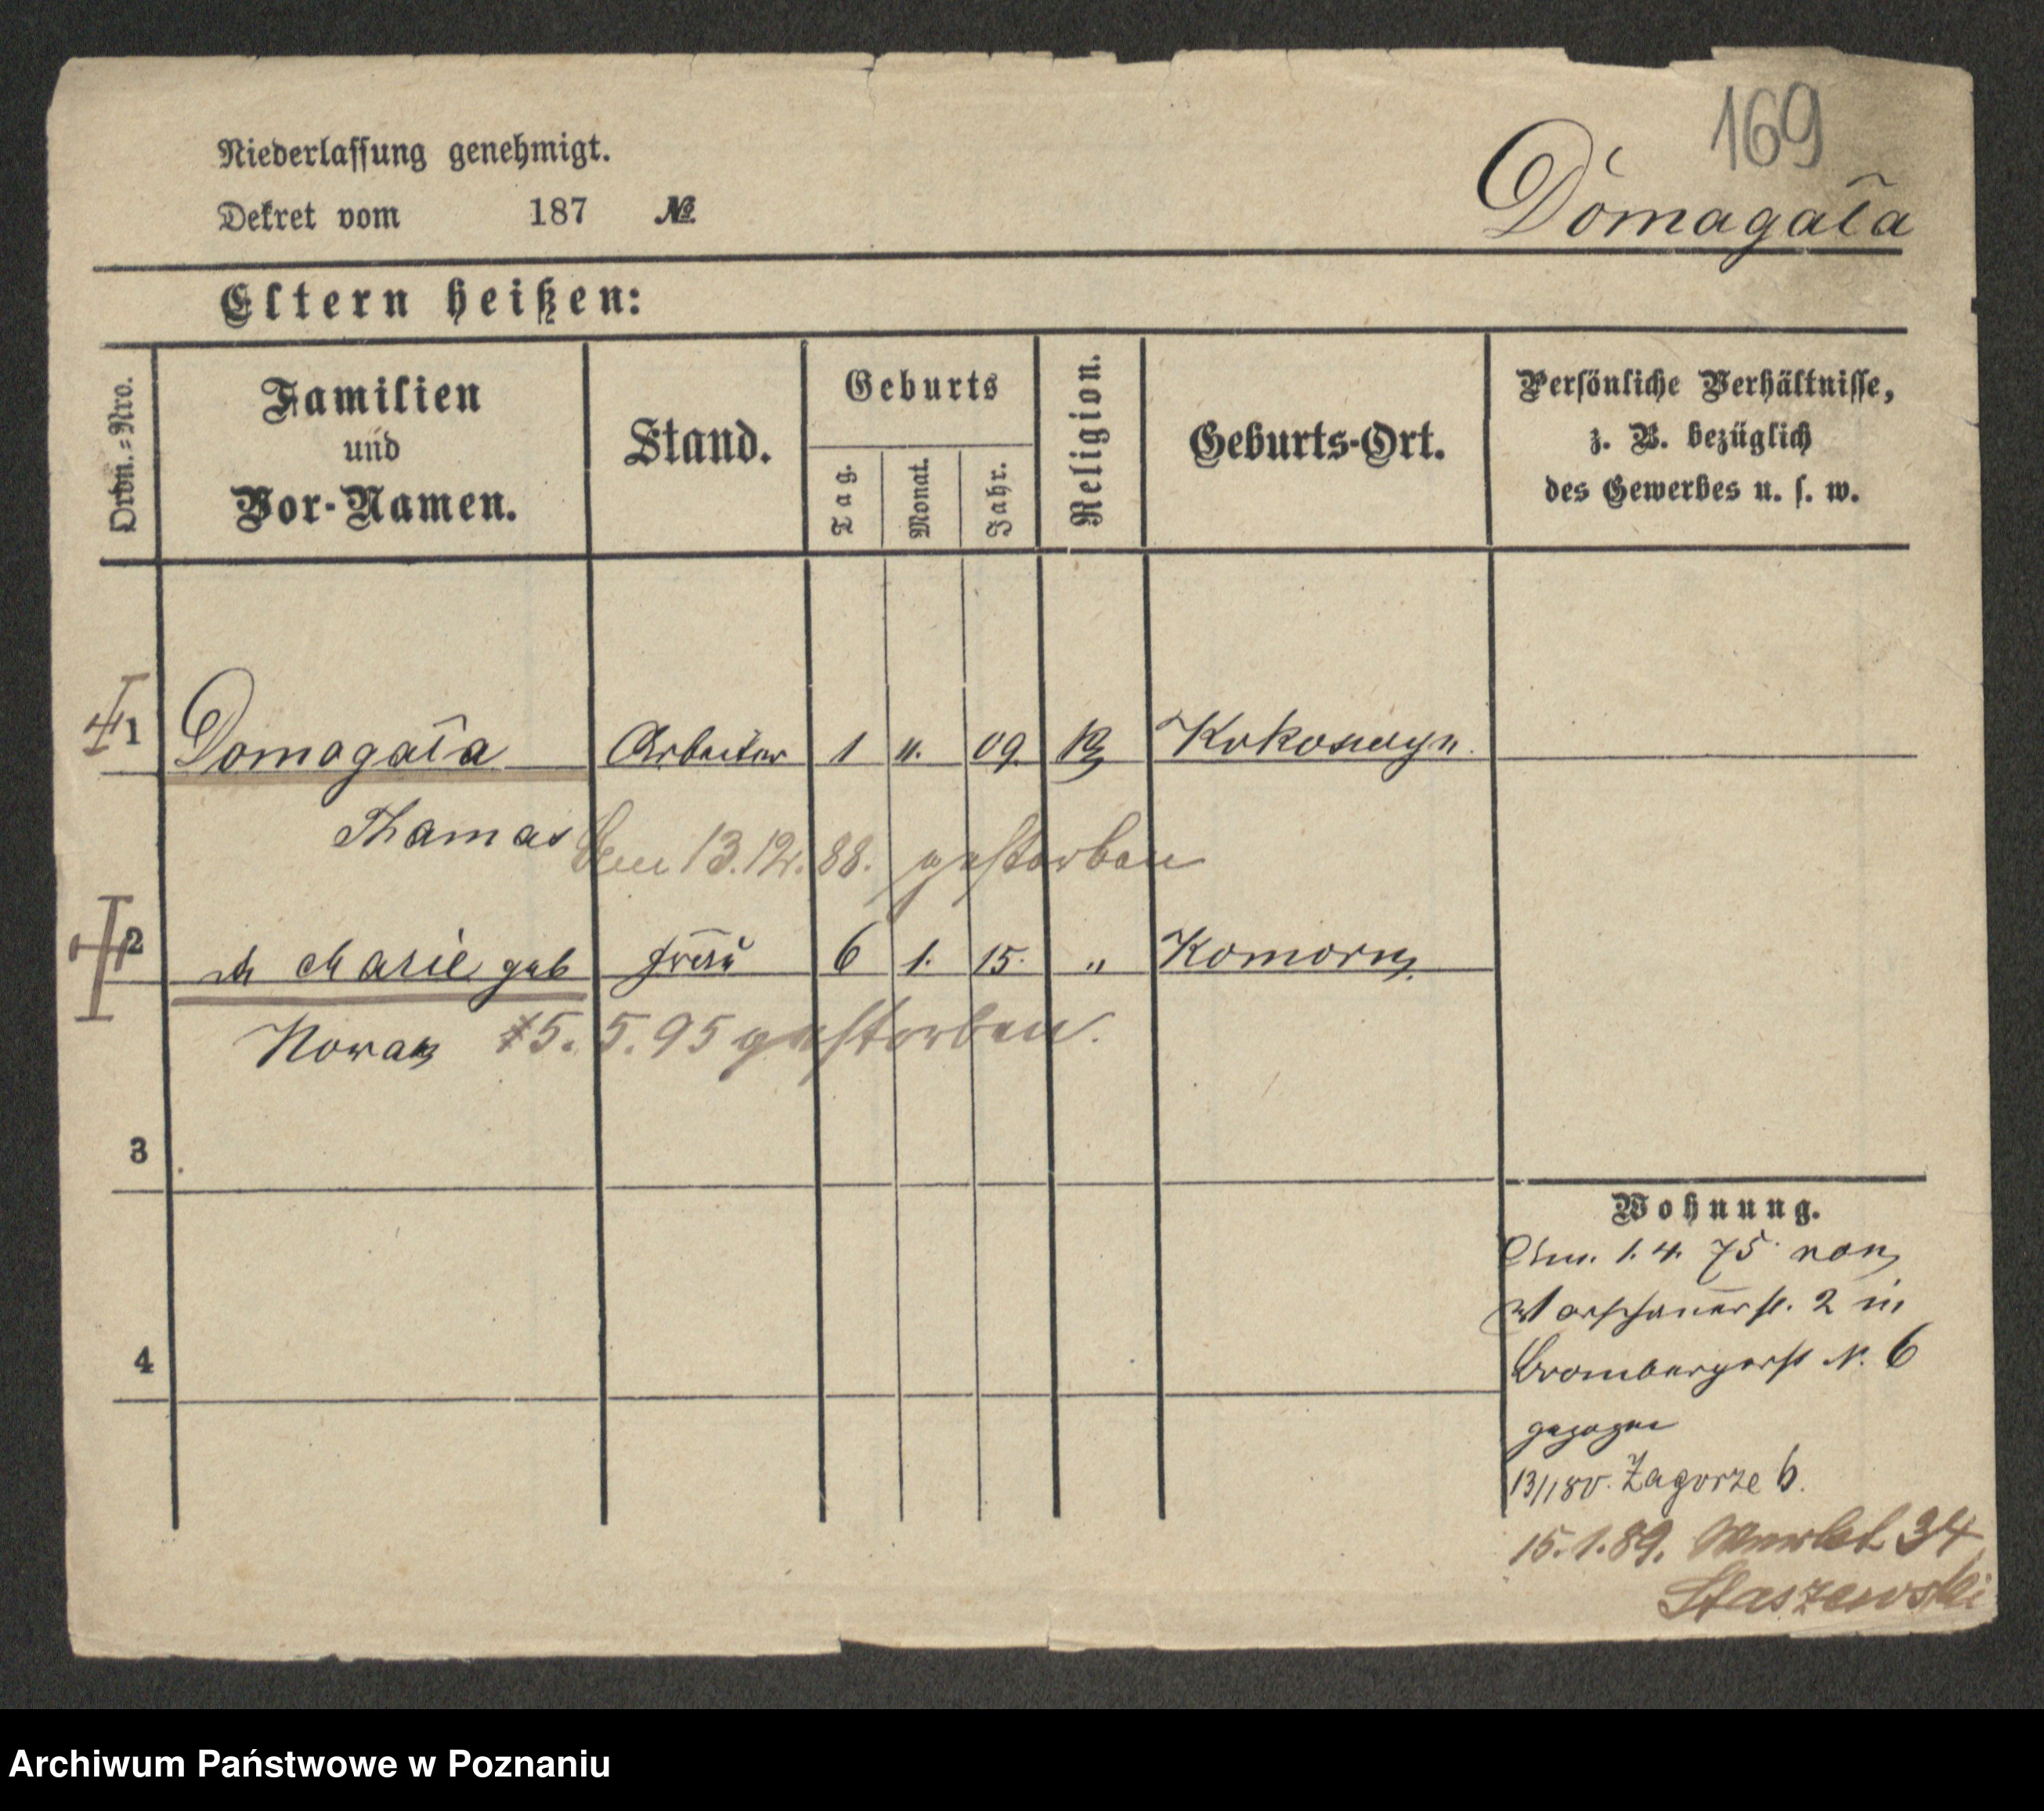 169
Niederlassung genehmigt.
Dekret vom 187 №
Domagała
Eltern heißen:
Ordn.=Nro.
Familien
und
Vor-Namen.
Stand.
Geburts
Tag.
Monat.
Jahr.
Religion.
Geburts-Ort.
Persönliche Verhältnisse,
z. B. bezüglich
des Gewerbes u. s. w.
1 Domagała Arbeiter 1 11. 09. K
Thomas
Den 13.12.88. gestorben
2 Marie geb Frau 6 1. 15. „ Komorn
Nowak 5.5.95 gestorben.
3
4
Wohnung.
Am 1.4. 75 von
Warschauerst. 2 in
Brombergerst N. 6
gezogen
13/1 80. Zagorze 6.
15.1.89. 34
Staszewski
Archiwum Państwowe w Poznaniu